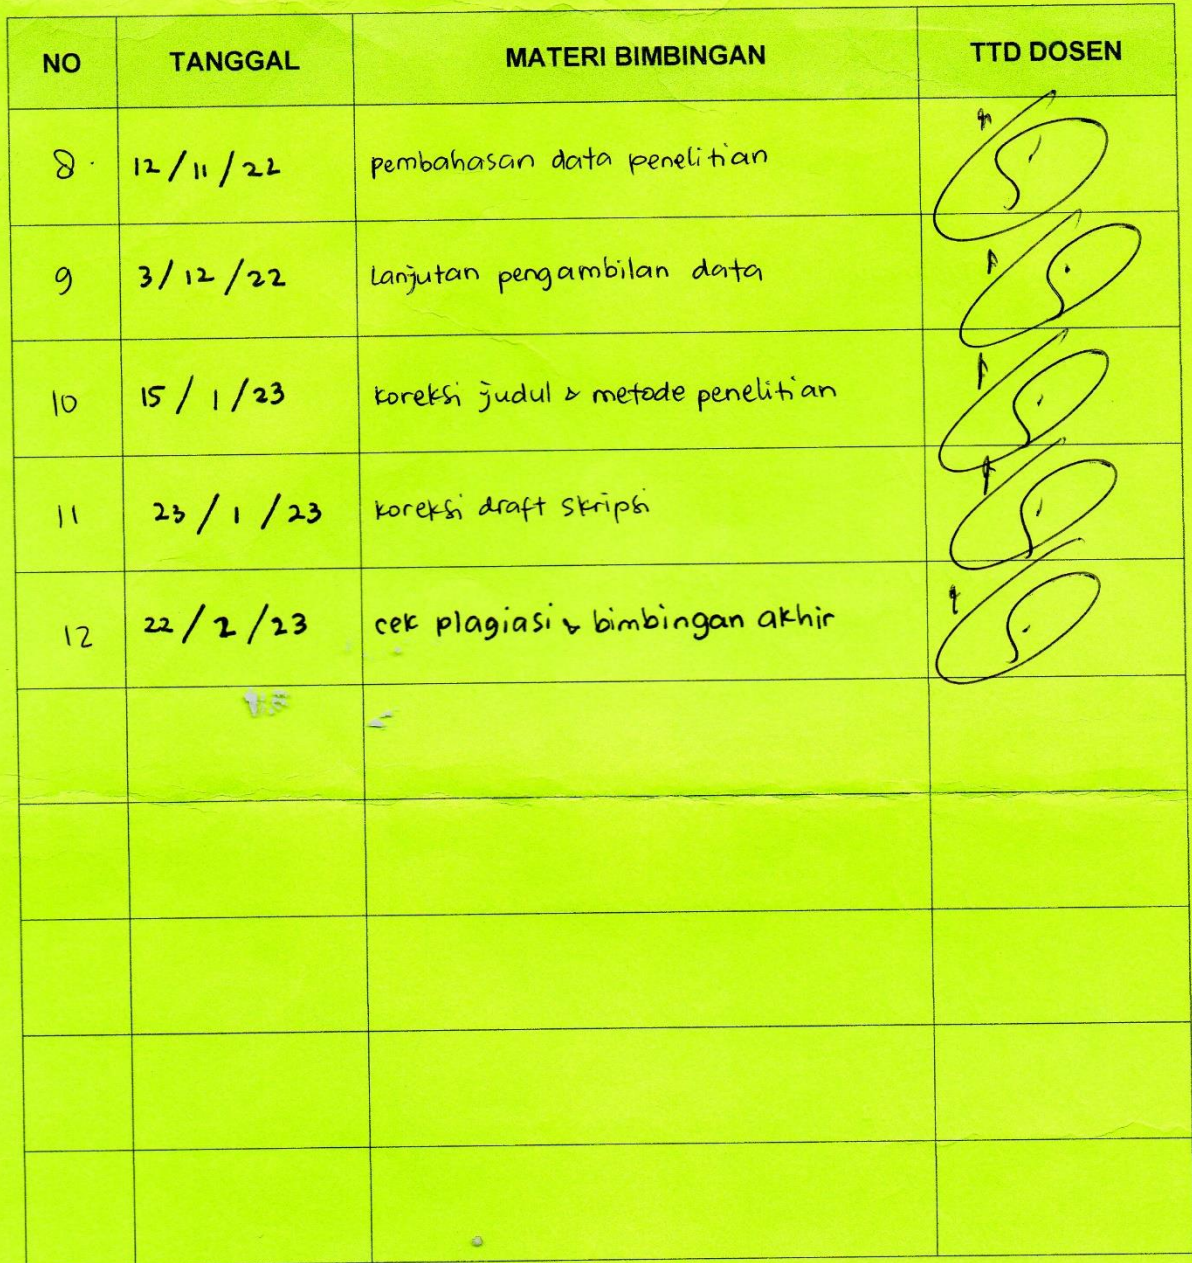 NO TANGGAL MATERI BIMBINGAN TTD DOSEN
8. 12/11/22 pembahasan data penelitian
9 3/12/22 Lanjutan pengambilan data
10 15/1/23 koreksi judul & metode penelitian
11 23/1/23 koreksi draft skripsi
12 22/2/23 cek plagiasi & bimbingan akhir